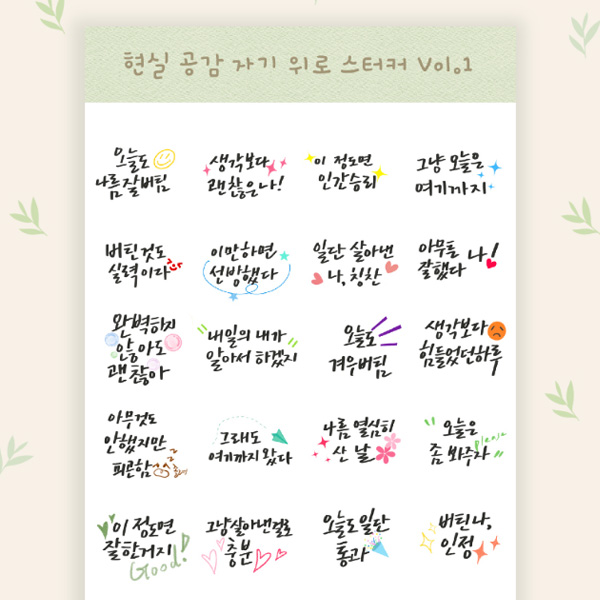 현실 공감 자기 위로 스티커 Vol.1
오늘도
나름 잘버팀
생각보다
괜찮은 나!
이 정도면
인간승리
그냥 오늘은
여기까지
버틴것도
실력이다
이만하면
선방했다
일단 살아낸
나, 칭찬
아무튼
잘했다 나!
완벽하지
않아도
괜찮아
내일의 내가
알아서 하겠지
오늘도
겨우버팀
생각보다
힘들었던하루
아무것도
안했지만
피곤함
그래도
여기까지 왔다
나름 열심히
산 날
오늘은
좀 봐주자
Please
이 정도면
잘한거지
Good!
그냥살아낸걸로
충분
오늘도 일단
통과
버틴 나,
인정